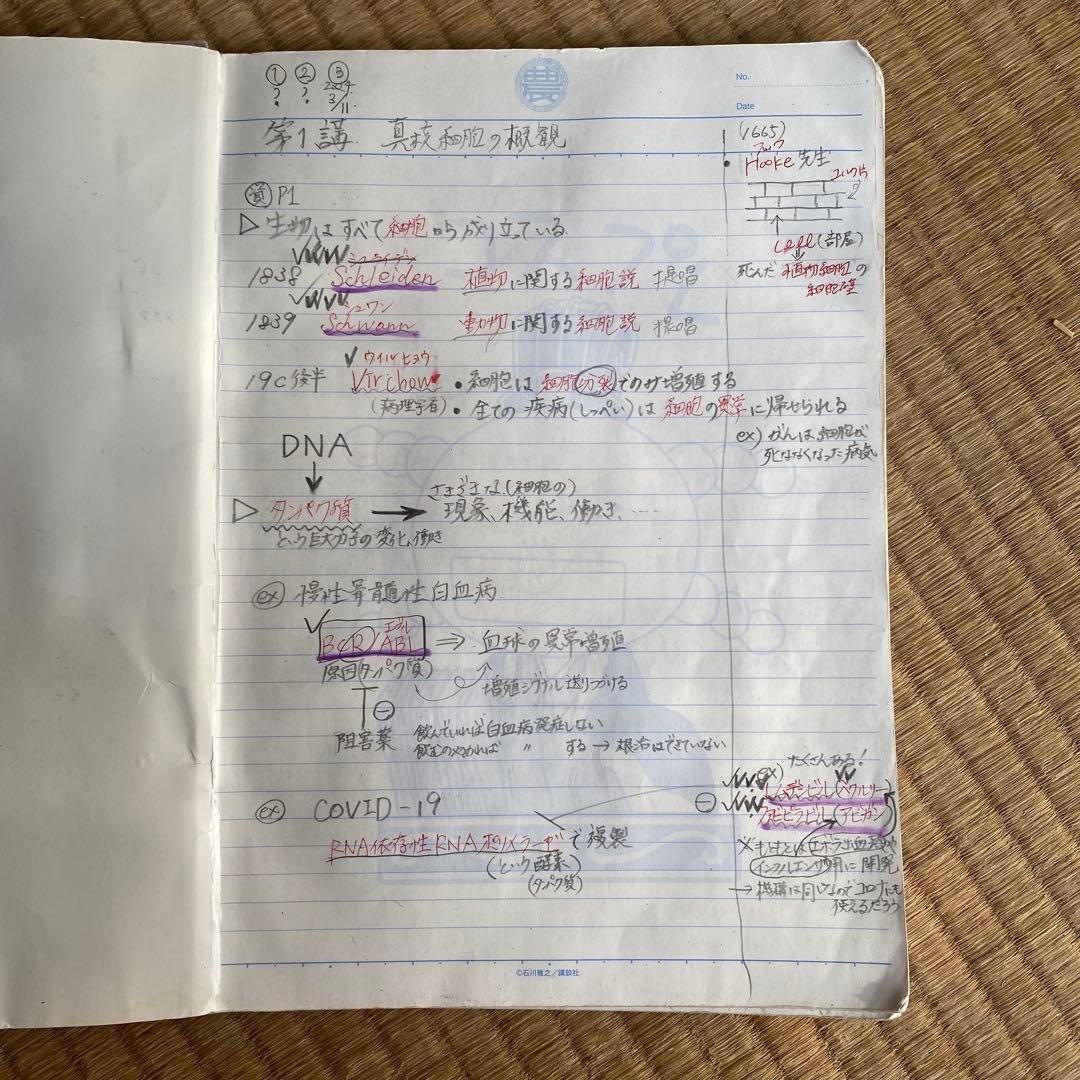 ① ② ③
? ? 2024.
3/11.
農
No.
Date
第1講 真核細胞の概観
(1665)
フック
• Hooke 先生
コルク片
cell (部屋)
死んだ 植物細胞の
細胞壁
P1
▷ 生物はすべて細胞から成り立っている
シュライデン
1838 Schleiden 植物に関する細胞説 提唱
シュワン
1839 Schwann 動物に関する細胞説 提唱
ウィルヒョウ
19c後半 Virchow • 細胞は細胞分裂でのみ増殖する
(病理学者) • 全ての疾病(しっぺい)は細胞の異常に帰せられる
ex) がんは細胞が
死ななくなった病気
DNA
↓
さまざまな(細胞の)
▷ タンパク質 → 現象、機能、働き、……
という巨大分子の変化、働き
ex 慢性骨髄性白血病
エイブル
BCR/ABL ⇒ 血球の異常増殖
原因タンパク質)
増殖シグナル送りつける
⊖
阻害薬 飲んでいれば白血病発症しない
飲むのやめれば 〃 する → 根治はできていない
ex COVID-19
RNA依存性RNAポリメラーゼで複製
(という酵素
(タンパク質)
たくさんある!
ex)
⊖ レムデシビル(ベクルリー)
ファビピラビル(アビガン)
※もともとはエボラ出血熱や
インフルエンザ用に開発
→ 機構は同じなのでコロナにも
使えるだろう
©石川雅之/講談社